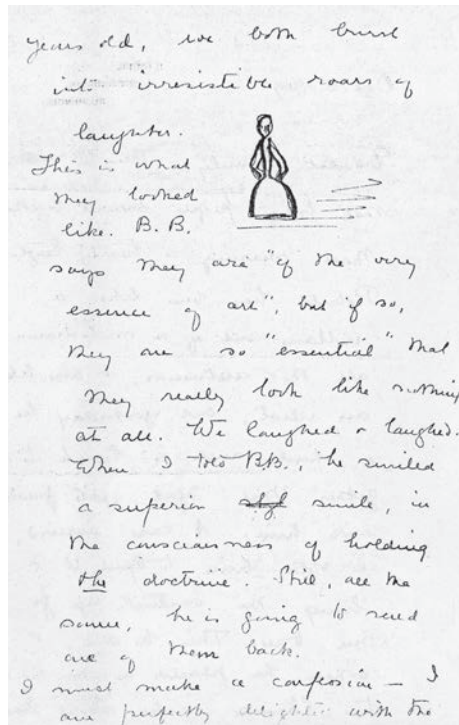 years old, we both burst
into irresistible roars of
laughter.
This is what
they looked
like. B.B.
says they are "of the very
essence of art", but if so,
they are so "essential" that
they really look like nothing
at all. We laughed & laughed.
When I told B.B., he smiled
a superior smile, in
the consciousness of holding
the doctrine. Still, all the
same, he is going to send
one of them back.
I must make a confession — I
am perfectly delighted with the